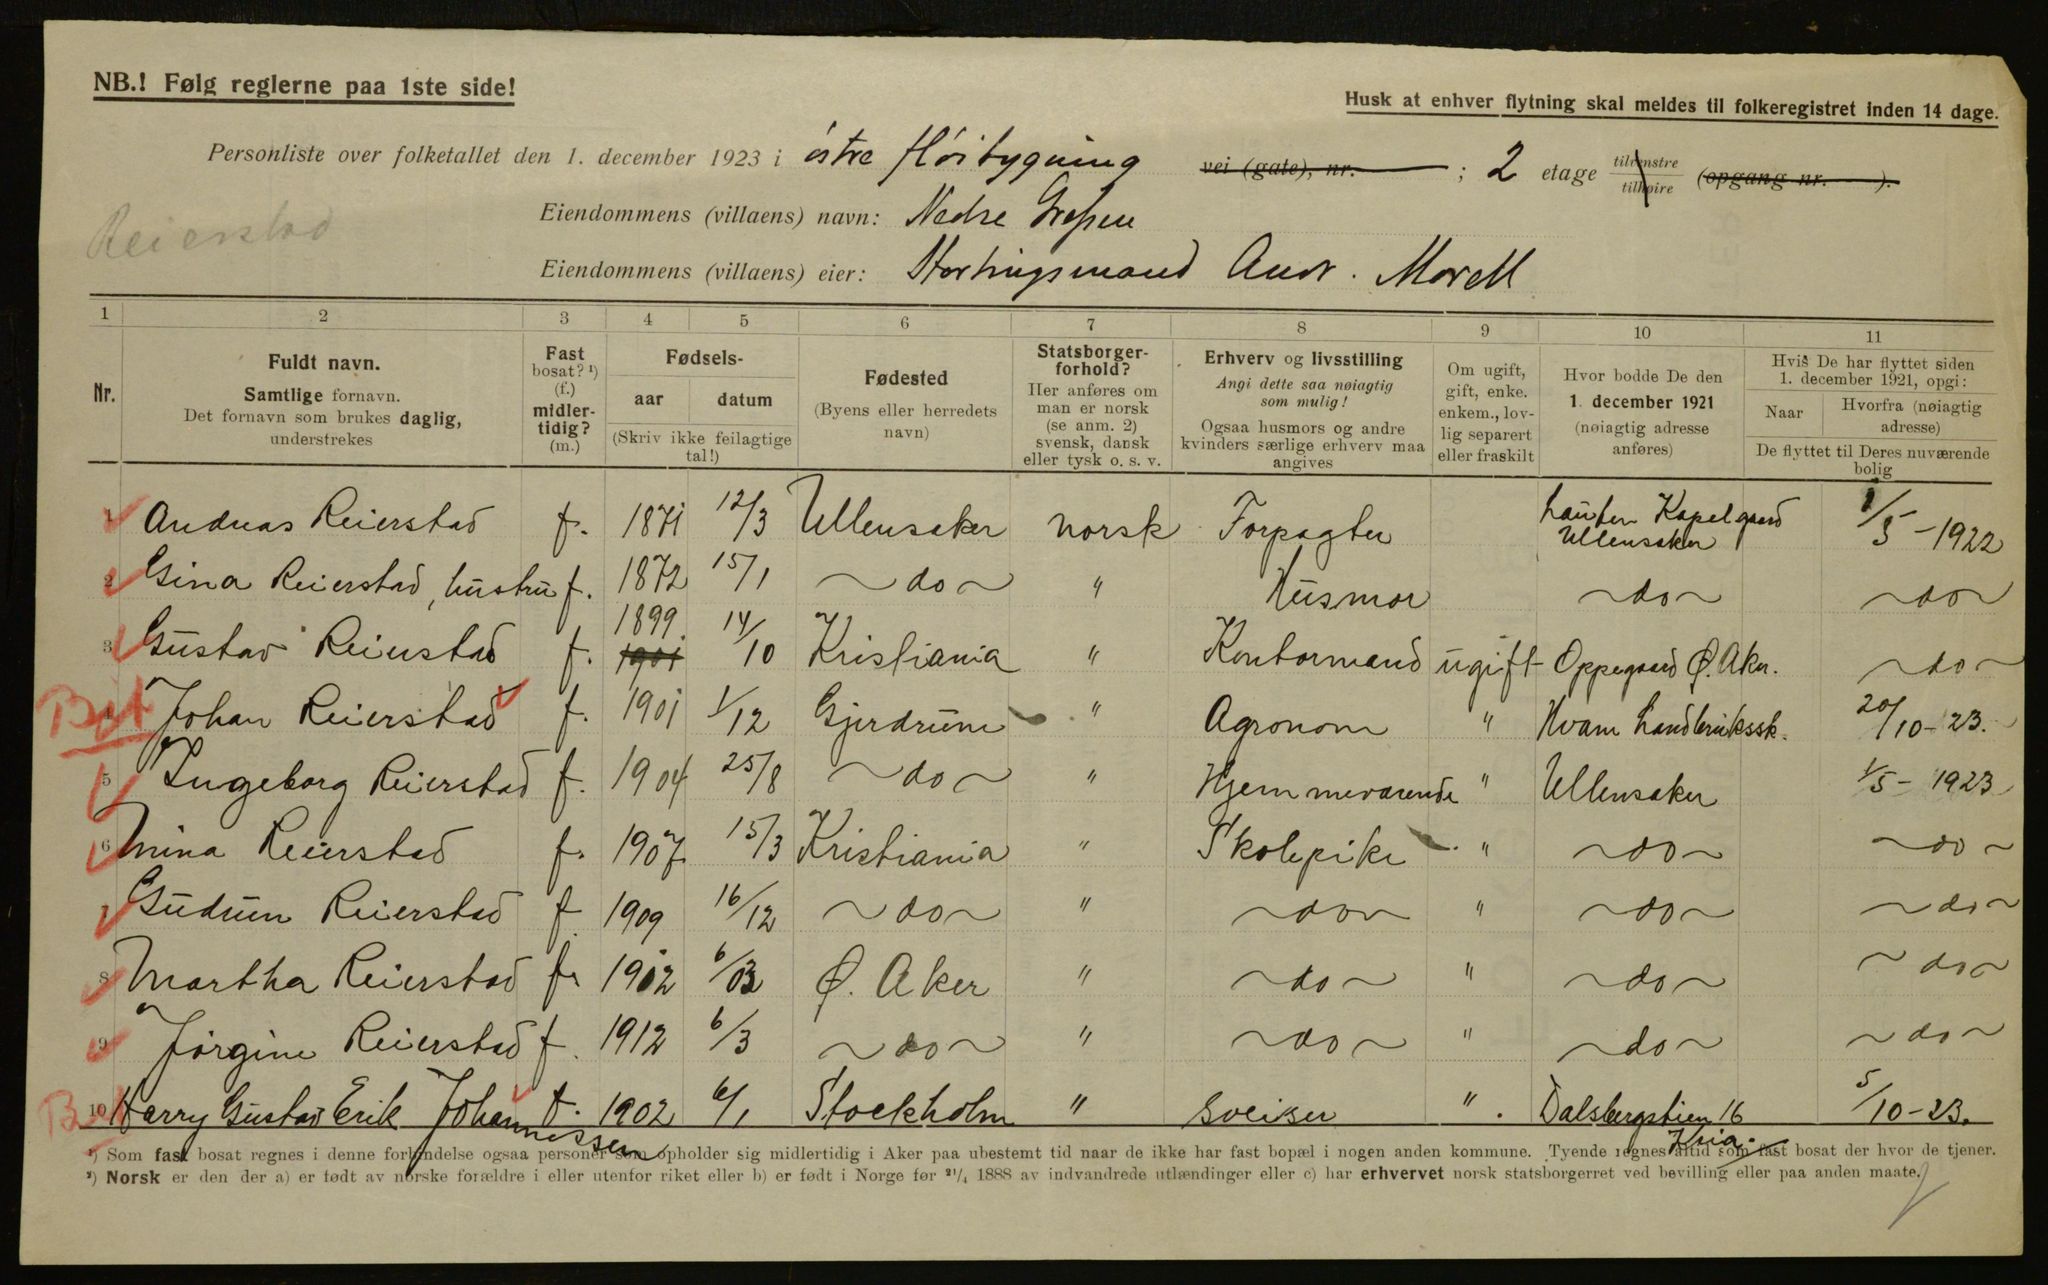 NB.! Følg reglerne paa 1ste side!
Husk at enhver flytning skal meldes til folkeregistret inden 14 dage.
Personliste over folketallet den 1. december 1923 i østre fløibygning vei (gate), nr. ; 2 etage tilvenstre tilhøire (opgang nr. ).
Reierstad
Eiendommens (villaens) navn: Nedre Grefsen
Eiendommens (villaens) eier: Stortingsmand Andr. Morell
1 2 3 4 5 6 7 8 9 10 11
Nr.
Fuldt navn.
Samtlige fornavn.
Det fornavn som brukes daglig,
understrekes
Fast
bosat? ¹)
(f.)
midler-
tidig?
(m.)
Fødsels-
aar datum
(Skriv ikke feilagtige
tal!)
Fødested
(Byens eller herredets
navn)
Statsborger-
forhold?
Her anføres om
man er norsk
(se anm. 2)
svensk, dansk
eller tysk o. s. v.
Erhverv og livsstilling
Angi dette saa nøiagtig
som mulig!
Ogsaa husmors og andre
kvinders særlige erhverv maa
angives
Om ugift,
gift, enke.
enkem., lov-
lig separert
eller fraskilt
Hvor bodde De den
1. december 1921
(nøiagtig adresse
anføres)
Hvis De har flyttet siden
1. december 1921, opgi:
Naar Hvorfra (nøiagtig
adresse)
De flyttet til Deres nuværende
bolig
1 Andreas Reierstad f. 1871 12/3 Ullensaker norsk Forpagter Kapelgaard Ullensaker 1/5 - 1922
2 Gina Reierstad, hustru f. 1872 15/1 ~do~ " Husmor ~do~ ~do~
3 Gustav Reierstad f. 1899 1901 14/10 Kristiania " Kontormand ugift Oppegaard Ø. Aker. ~do~
4 Johan Reierstad f. 1901 1/12 Gjerdrum " Agronom " Hvam Landbrukssk. 20/10-23.
5 Ingeborg Reierstad f. 1904 25/8 ~do~ " Hjemmeværende " Ullensaker 1/5 - 1923
6 Mina Reierstad f. 1907 15/3 Kristiania " Skolepike " ~do~ ~do~
7 Gudrun Reierstad f 1909 16/12 ~do~ " ~do~ " ~do~ ~do~
8 Martha Reierstad f. 1912 6/3 Ø. Aker " ~do~ " ~do~ ~do~
9 Jørgine Reierstad f. 1912 6/3 ~do~ " ~do~ " ~do~ ~do~
10 Harry Gustav Erik Johannessen f. 1902 6/1 Stockholm " sveiser " Dalsbergstien 16 Kria. 5/10-23.
¹) Som fast bosat regnes i denne forbindelse ogsaa personer som opholder sig midlertidig i Aker paa ubestemt tid naar de ikke har fast bopæl i nogen anden kommune. Tyende regnes altid som fast bosat der hvor de tjener.
²) Norsk er den der a) er født av norske forældre i eller utenfor riket eller b) er født i Norge før ²¹/₄ 1888 av indvandrede utlændinger eller c) har erhvervet norsk statsborgerret ved bevilling eller paa anden maate.